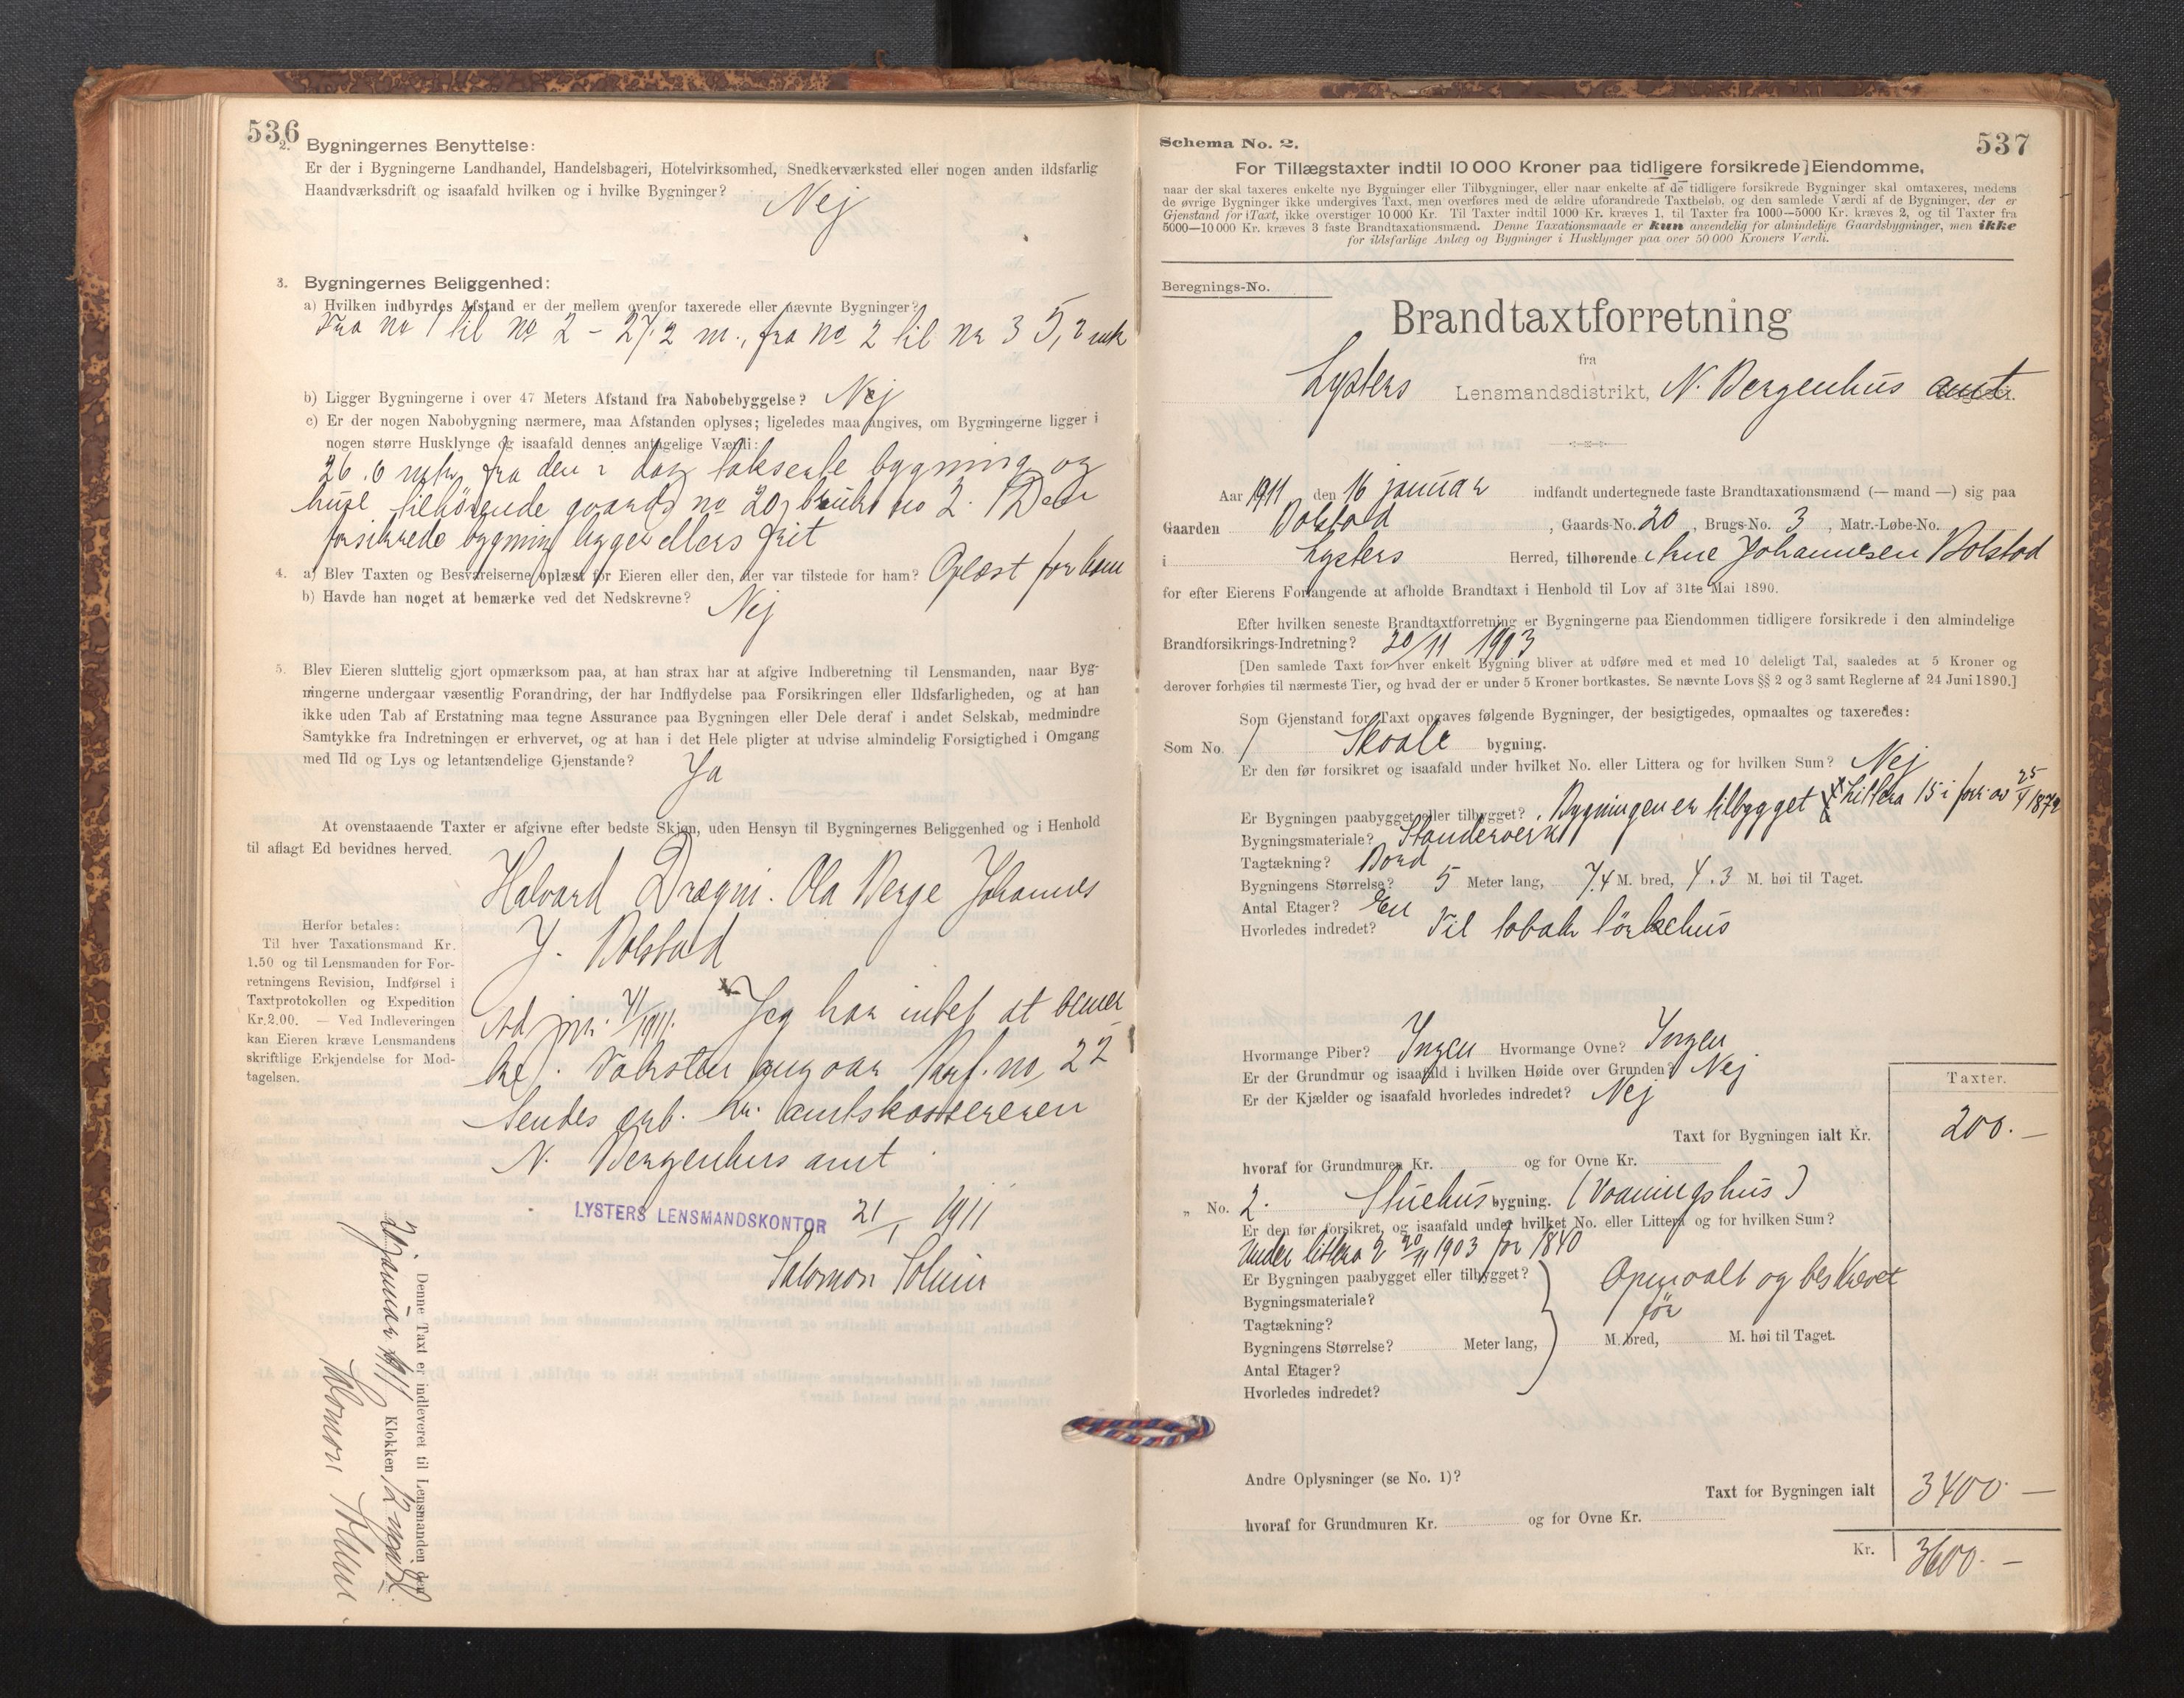 536
2. Bygningernes Benyttelse:
Er der i Bygningerne Landhandel, Handelsbageri, Hotelvirksomhed, Snedkerværksted eller nogen anden ildsfarlig
Haandværksdrift og isaafald hvilken og i hvilke Bygninger? Nej
3. Bygningernes Beliggenhed:
a) Hvilken indbyrdes Afstand er der mellem ovenfor taxerede eller nævnte Bygninger?
Fra no 1 til no 2 - 27.2 m., fra no 2 til nr 3 5,2 mtr
b) Ligger Bygningerne i over 47 Meters Afstand fra Nabobebyggelse? Nej
c) Er der nogen Nabobygning nærmere, maa Afstanden oplyses; ligeledes maa angives, om Bygningerne ligger i
nogen større Husklynge og isaafald dennes antagelige Værdi:
26.0 mtr fra den i dag takserte bygning og
huse tilhørende gaards no 20, bruks no 2. Den
forsikrede bygning ligger ellers frit
4. a) Blev Taxten og Besvarelserne oplæst for Eieren eller den, der var tilstede for ham? Oplæst for ham
b) Havde han noget at bemærke ved det Nedskrevne? Nej
5. Blev Eieren sluttelig gjort opmærksom paa, at han strax har at afgive Indberetning til Lensmanden, naar Byg-
ningerne undergaar væsentlig Forandring, der har Indflydelse paa Forsikringen eller Ildsfarligheden, og at han
ikke uden Tab af Erstatning maa tegne Assurance paa Bygningen eller Dele deraf i andet Selskab, medmindre
Samtykke fra Indretningen er erhvervet, og at han i det Hele pligter at udvise almindelig Forsigtighed i Omgang
med Ild og Lys og letantændelige Gjenstande? Ja
At ovenstaaende Taxter er afgivne efter bedste Skjøn, uden Hensyn til Bygningernes Beliggenhed og i Henhold
til aflagt Ed bevidnes herved.
Halvard Drægni. Ola Berge Johannes
J. Bolstad
Herfor betales:
Til hver Taxationsmand Kr.
1.50 og til Lensmanden for For-
retningens Revision, Indførsel i
Taxtprotokollen og Expedition
Kr. 2.00. — Ved Indleveringen
kan Eieren kræve Lensmandens
skriftlige Erkjendelse for Mod-
tagelsen.
Jeg har intet at bemer
ke. no 22
Sendes amtskassereren
N. Bergenhus amt
LYSTERS LENSMANDSKONTOR 21/1 1911
Salomon
Denne Taxt er indleveret til Lensmanden den
januar 1911 Klokken 12
Salomon
Schema No. 2.
537
For Tillægstaxter indtil 10 000 Kroner paa tidligere forsikrede] Eiendomme,
naar der skal taxeres enkelte nye Bygninger eller Tilbygninger, eller naar enkelte af de tidligere forsikrede Bygninger skal omtaxeres, medens
de øvrige Bygninger ikke undergives Taxt, men overføres med de ældre uforandrede Taxtbeløb, og den samlede Værdi af de Bygninger, der er
Gjenstand for Taxt, ikke overstiger 10 000 Kr. Til Taxter indtil 1000 Kr. kræves 1, til Taxter fra 1000—5000 Kr. kræves 2, og til Taxter fra
5000—10 000 Kr. kræves 3 faste Brandtaxationsmænd. Denne Taxationsmaade er kun anvendelig for almindelige Gaardsbygninger, men ikke
for ildsfarlige Anlæg og Bygninger i Husklynger paa over 50 000 Kroners Værdi.
Beregnings-No.
Brandtaxtforretning
fra
Lysters Lensmandsdistrikt, N. Bergenhus amt
Aar 1911 den 16 januar indfandt undertegnede faste Brandtaxationsmænd (— mand —) sig paa
Gaarden Bolstad, Gaards-No. 20, Brugs-No. 3, Matr.-Løbe-No.
i Lysters Herred, tilhørende Arne Johannesen Bolstad
for efter Eierens Forlangende at afholde Brandtaxt i Henhold til Lov af 31te Mai 1890.
Efter hvilken seneste Brandtaxtforretning er Bygningerne paa Eiendommen tidligere forsikrede i den almindelige
Brandforsikrings-Indretning? 20/11 1903
[Den samlede Taxt for hver enkelt Bygning bliver at udføre med et med 10 deleligt Tal, saaledes at 5 Kroner og
derover forhøies til nærmeste Tier, og hvad der er under 5 Kroner bortkastes. Se nævnte Lovs §§ 2 og 3 samt Reglerne af 24 Juni 1890.]
Som Gjenstand for Taxt opgaves følgende Bygninger, der besigtigedes, opmaaltes og taxeredes:
Som No. 1 Skaale bygning.
Er den før forsikret og isaafald under hvilket No. eller Littera og for hvilken Sum? Nej
Er Bygningen paabygget eller tilbygget? Bygningen er tilbygget littera 15 i forr. av 25/4 1872
Bygningsmateriale? Standerverk
Tagtækning? Bord
Bygningens Størrelse? 5 Meter lang, 7.4 M. bred, 4.3 M. høi til Taget.
Antal Etager? En
Hvorledes indredet? Til tobak tørkehus
Hvormange Piber? Ingen Hvormange Ovne? Ingen
Er der Grundmur og isaafald i hvilken Høide over Grunden? Nej
Er der Kjælder og isaafald hvorledes indredet? Nej
Taxter.
Taxt for Bygningen ialt Kr. 200.—
hvoraf for Grundmuren Kr. og for Ovne Kr.
„ No. 2. Stuehus bygning. (Vaaningshus)
Er den før forsikret, og isaafald under hvilket No. eller Littera og for hvilken Sum?
Under littera 2 20/11 1903 for 1840
Er Bygningen paabygget eller tilbygget?
Bygningsmateriale?
Tagtækning?
Bygningens Størrelse? Meter lang, M. bred, M. høi til Taget.
Antal Etager?
Hvorledes indredet?
Opmaalt og beskrevet
før
Andre Oplysninger (se No. 1)?
Taxt for Bygningen ialt 3400.—
hvoraf for Grundmuren Kr. og for Ovne Kr.
Kr. 3600.—